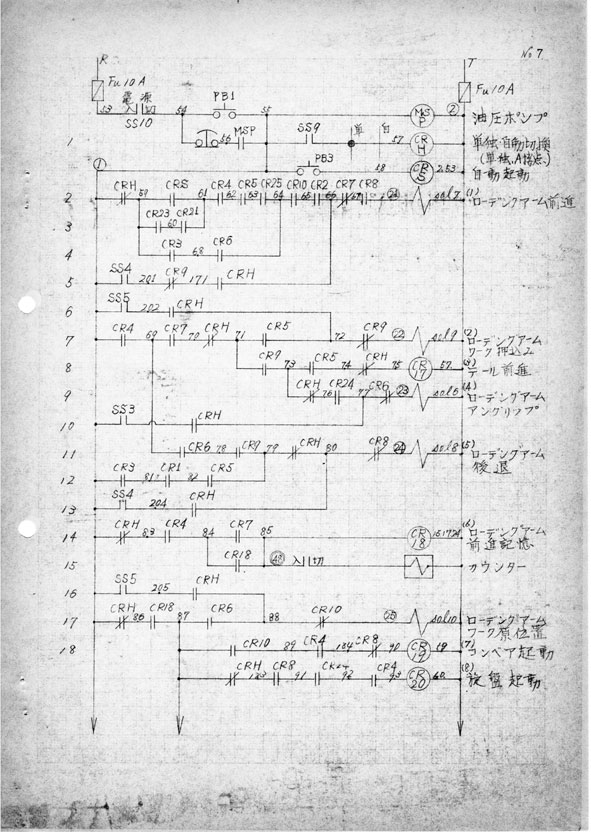 No 7
R T
Fu 10A Fu 10A
電源 PB1
入 切 53 54 55 MSP ② 油圧ポンプ
SS10
1 56 MSP SS9 単 自 57 CRH 単独自動切換
(単独、A接点)
① PB3 58 253 自動起動
2 CRH 59 CR8 61 CR4 62 CR5 63 CR25 64 CR10 65 CR2 66 CR7 67 CR8 ㉑ sol7 (1) ローデングアーム前進
3 CR23 60 CR21
4 CR3 68 CR6
5 SS4 201 CR9 171 CRH
6 SS5 202 CRH
7 CR4 69 CR7 70 CRH 71 CR5 72 CR9 ㉒ sol9 (2) ローデングアーム
ワーク押込み
8 CR9 73 CR5 74 CRH 75 CR17 57 (3) テール前進
9 CRH 76 CR24 77 CR6 ㉓ sol6 (4) ローデングアーム
アングリップ
10 SS3 CRH
11 CR6 78 CR9 79 CRH 80 CR8 ㉔ sol8 (5) ローデングアーム
後退
12 CR3 81 CR1 82 CR5
13 SS4 204 CRH
14 CRH 83 CR4 84 CR7 85 CR18 (6) ローデングアーム
前進記憶
15 CR18 入 切 カウンター
16 SS5 205 CRH
17 CRH 86 CR18 87 CR6 88 CR10 ㉕ sol10 ローデングアーム
ワーク原位置
18 CR10 89 CR4 184 CR8 90 CR19 19 (7) コンベア起動
CRH CR8 91 92 CR4 93 CR20 60 (8) 旋盤起動